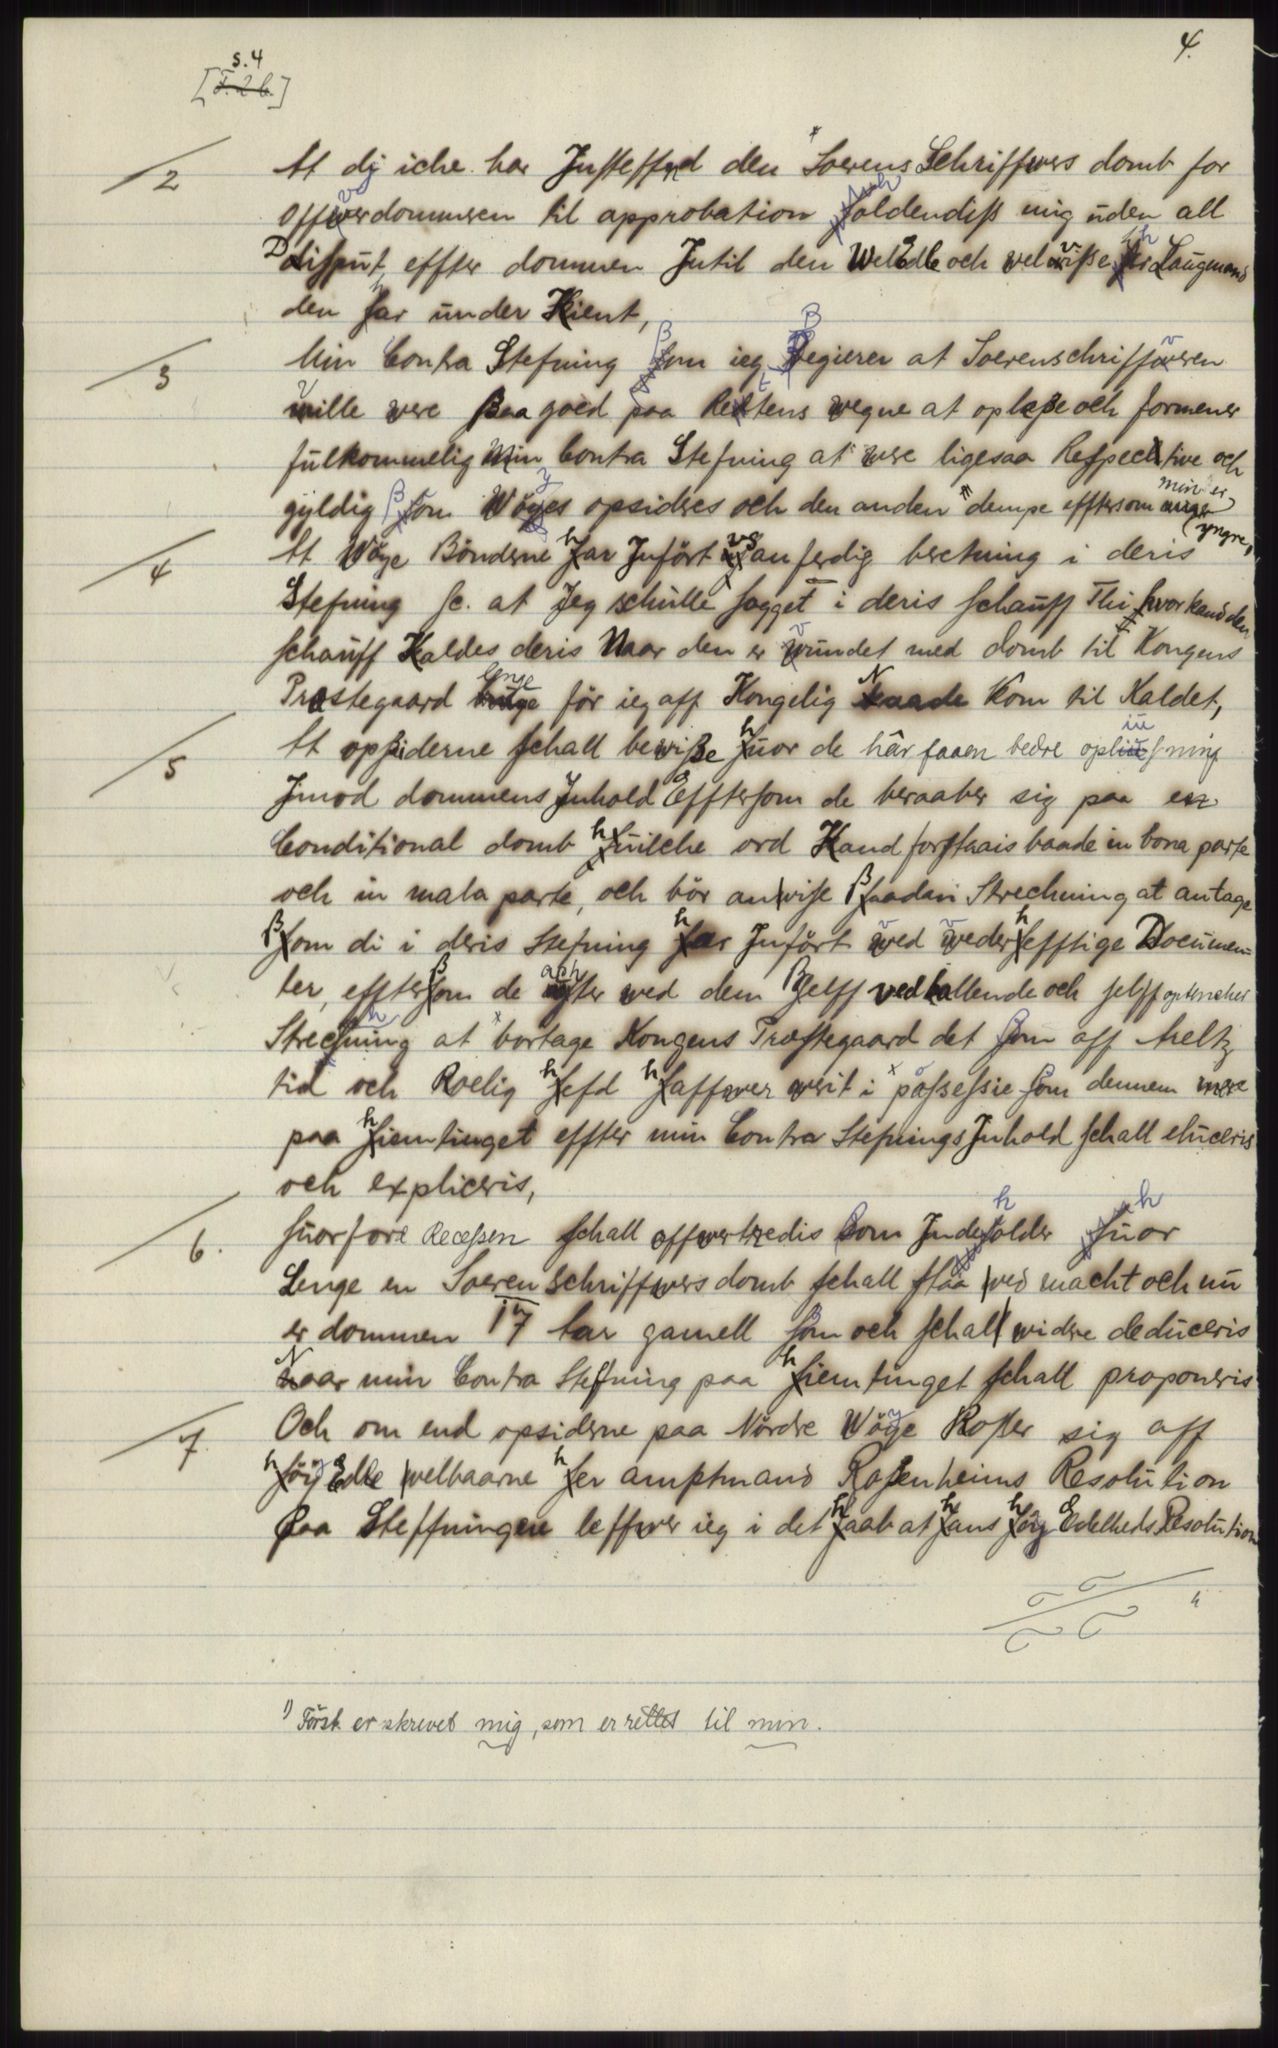 4.
s. 4
[F. 2 b.]
2 At dj iche har Insteffned den Sorens Schriffwers domb for
offverdommeren til approbation holdendiss mig uden all
Disput, effter dommen Intil den WelEdle och velvisse hr Laugmand
den har under Kient,
3 Min Contra Stefning ßom ieg Begierer at Sorenschriffveren
ville were ßaa goed paa Rettens wegne at oplæße och formener
fulkommelig Min Contra Stefning at were ligesaa Respective och
gyldig ßom Wöyes opsideres och den anden dempe efftersom min er
yngre,
4 At Wöye Bönderne har Infört vs anferdig beretning i deris
Stefning sc. at Jeg schulle hagget i deris schauff Thi hvor kand den
schauff Kaldes deris Naar den er vundet med domb til Kongens
Præstegaard lenge för ieg aff Kongelig Naade Kom til Kaldet,
5 At opsiderne schall bewiße huor de hâr faaen bedre opliusning
Imod dommens Inhold Efftersom de beraaber sig paa en
Conditional domb huilche ord Kand forstaais baade in bona parte
och in mala parte, och bör anwise ßaadan Strechning at antage
ßom di i deris Stefning har Infört ved vederhefftige Documen-
ter, effterßom de achter wed dem ßelff vedkallende och selff optencher
Strechning at bortage Kongens Præstegaard det ßom aff Aeltz
tid och Roelig hefd haffwer werit i possessie som dennem mere
paa hiemtinget effter min Contra Stefnings Inhold schall eluceris
och expliceris,
6. huorfore Recessen schall offwertredis ßom Indeholder huor
Lenge en Soeren Schriffwers domb schall staa wed macht och nu
er dommen 17 aar gamell som och schall widre deduceris
Naar min Contra Stefning paa hiemtinget schall proponeris
7. Och om end opsiderne paa Nördre Wöye Roßer sig aff
höyEdle welbaarne her amptmand Rosenheims Resolution
paa Steffningen leffwer ieg i det haab at hans höyEdelheds Resolution
1) Först er skrevet mig, som er rettet til min.